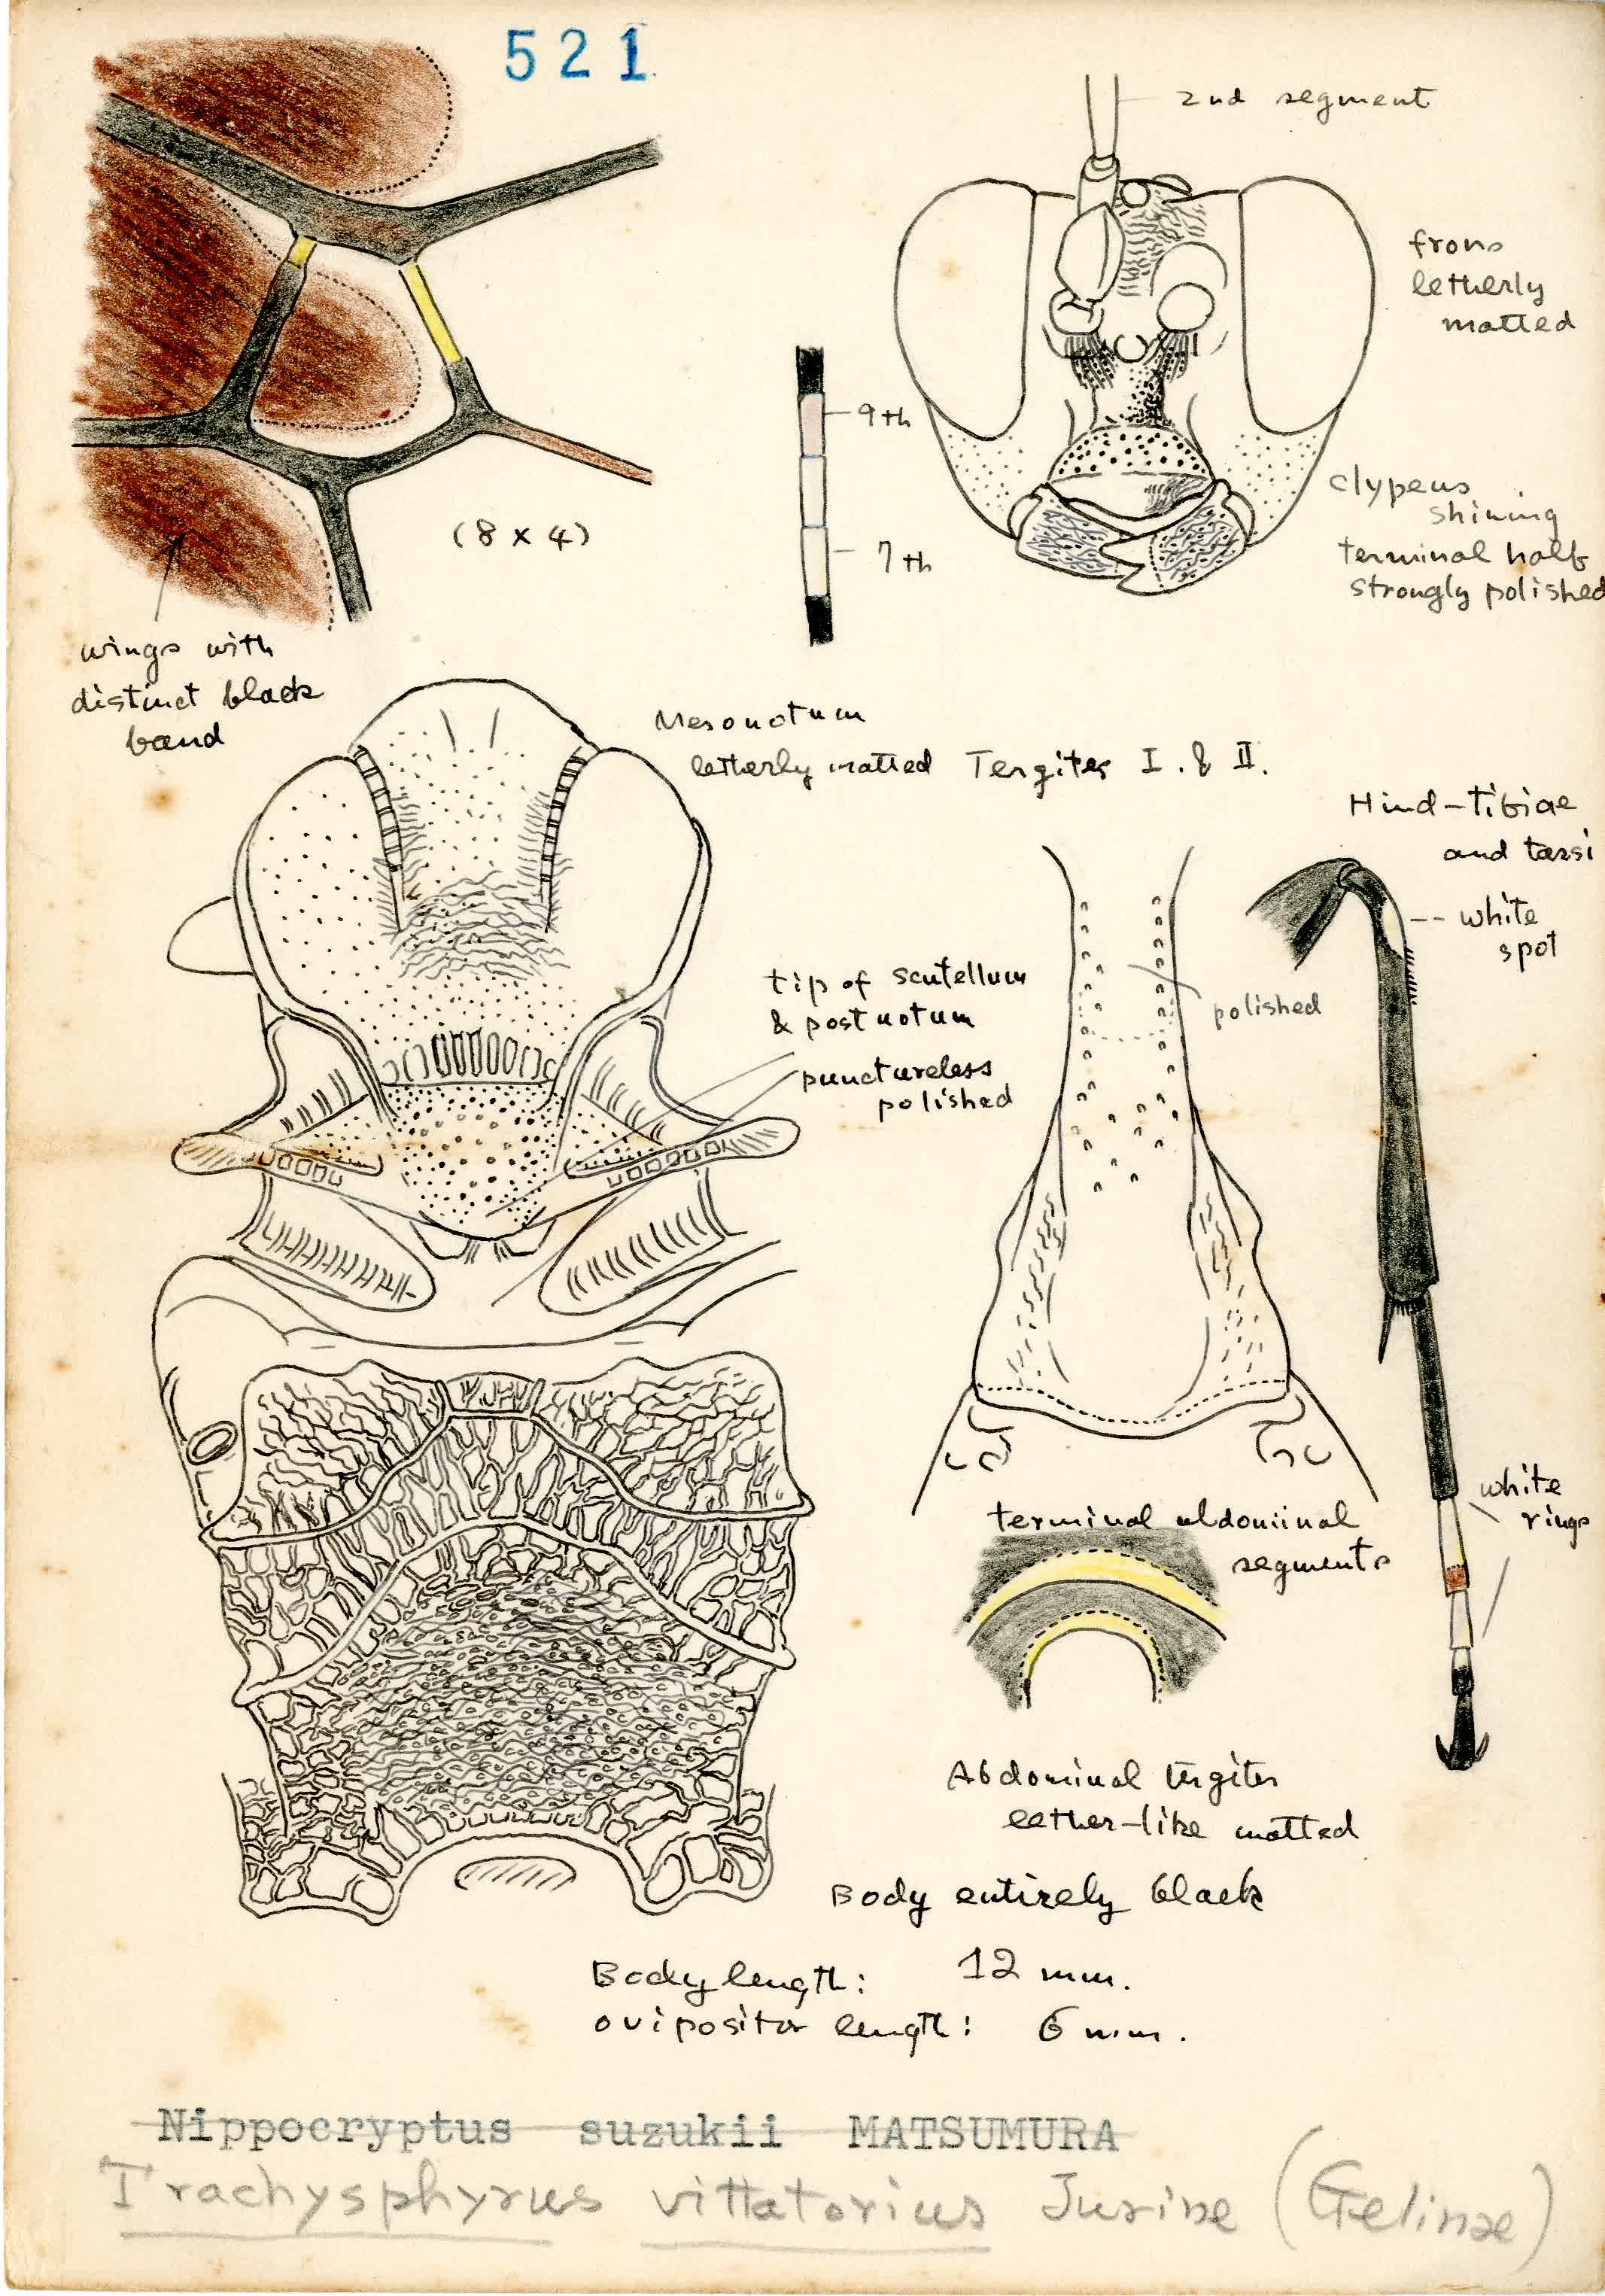 521
2nd segment
frons
letherly
matted
9th
7th
(8 x 4)
clypeus
shining
terminal half
strongly polished
wings with
distinct black
band
Mesonotum
letherly matted
Tergites I. & II.
Hind-tibiae
and tarsi
white
spot
tip of scutellum
& postnotum
punctureless
polished
polished
white
rings
terminal abdominal
segments
Abdominal tergites
lether-like matted
Body entirely black
Body length: 12 mm.
ovipositor length: 6 mm.
Nippocryptus suzukii MATSUMURA
Trachysphyrus vittatorius Jurine (Gelinae)